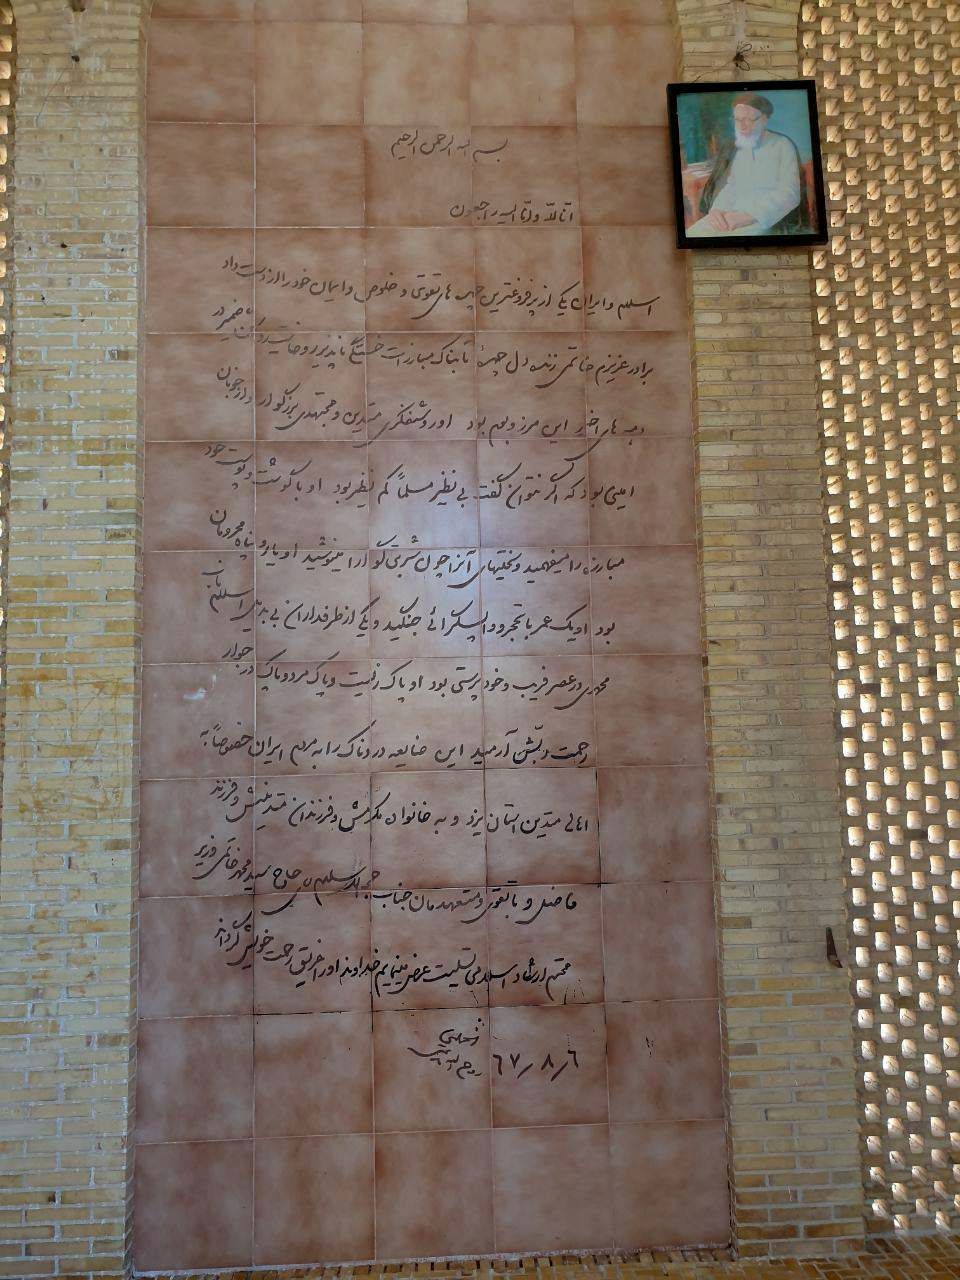 بسم الله الرحمن الرحیم
انا لله و انا الیه راجعون
اسلام و ایران یکی از پرفروغترین چهره های تقوی و خلوص و ایمان خود را از دست داد
برادر عزیزم خاتمی زنده دل چهرهٔ تابناک مبارزات خستگی ناپذیر روحانیت و آن ضمیر در
دهه های اخیر این مرز و بوم بود او روشنفکری متدین و مجتهدی بزرگوار و از خوبان
امینی بود که اگر نتوان گفت بی نظیر مسلماً کم نظیر بود او با گوشت و پوست خود
مبارزه را میفهمید و سختیهای آنرا چون شربتی گوارا مینوشید او یار و پناه محرومان
بود او یک عمر با تحجر و واپسگرائی جنگید و یکی از طرفداران بی بدیل اسلام ناب
محمدی در عصر فریب و خودپرستی بود او پاک زیست و پاک مرد و پاک در جوار
رحمت ربش آرمید این ضایعه دردناک را به مردم ایران خصوصاً به
اهالی متدین استان یزد و به خانواده مکرمش و فرزندان متدینش و فرزند
فاضل و با تقوی و متعهدمان جناب حجة الاسلام حاج سید محمد خاتمی وزیر
محترم ارشاد اسلامی تسلیت عرض مینمایم خداوند او را غریق رحمت خویش گرداند
۶۷/۸/۶
روح الله الموسوی الخمینی